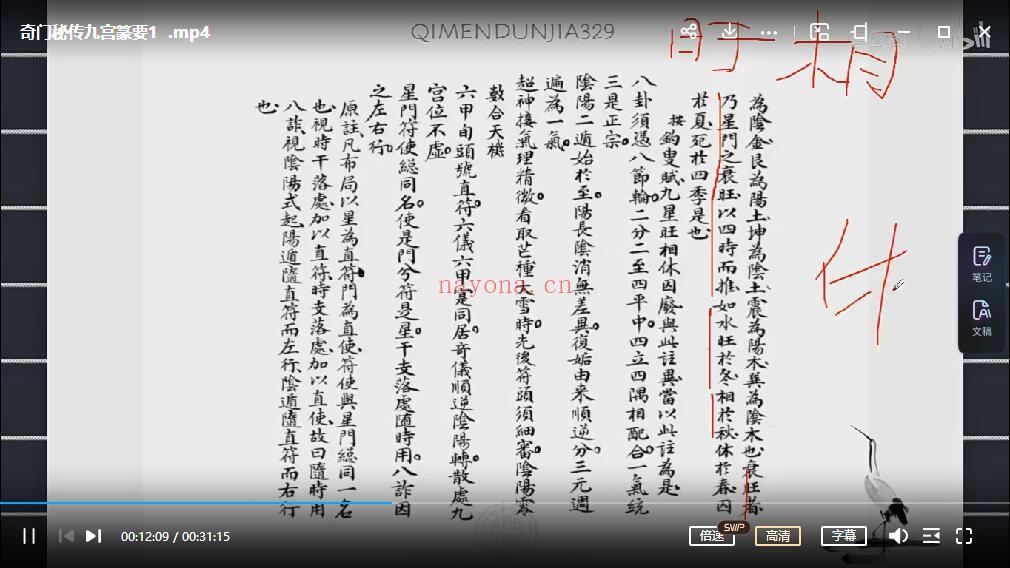 奇门秘传九宫纂要1 .mp4
QIMENDUNJIA329
為陰金艮為陽土坤為陰土震為陽木巽為陰木也衰旺者
乃星門之衰旺以四時而推如水旺於冬相於秋休於春囚
於夏死於四季是也
按釣叟賦九星旺相休囚廢與此註異當以此註為是
八卦須憑八節輪二分二至四平中四立四隅相配合一氣統
三是正宗
陰陽二遁始於至陽長陰消無差異復姤由來順逆分三元週
遍為一氣
超神接氣理精微看取芒種大雪時先後符頭須細審陰陽零
數合天機
六甲旬頭號直符六儀六甲是同居奇儀順逆陰陽轉散處九
宮位不虛
星門符使總同名使是門兮符是星干支落處随時用八詐因
之左右行
原註凡布局以星為直符門為直使符使與星門總同一名
也視時干落處加以直符時支落處加以直使故曰隨時用
八詐視陰陽式起陽遁隨直符而左行陰遁隨直符而右行
也
nayona.cn
相
笔记
文稿
00:12:09 / 00:31:15
倍速
SWP
高清
字幕